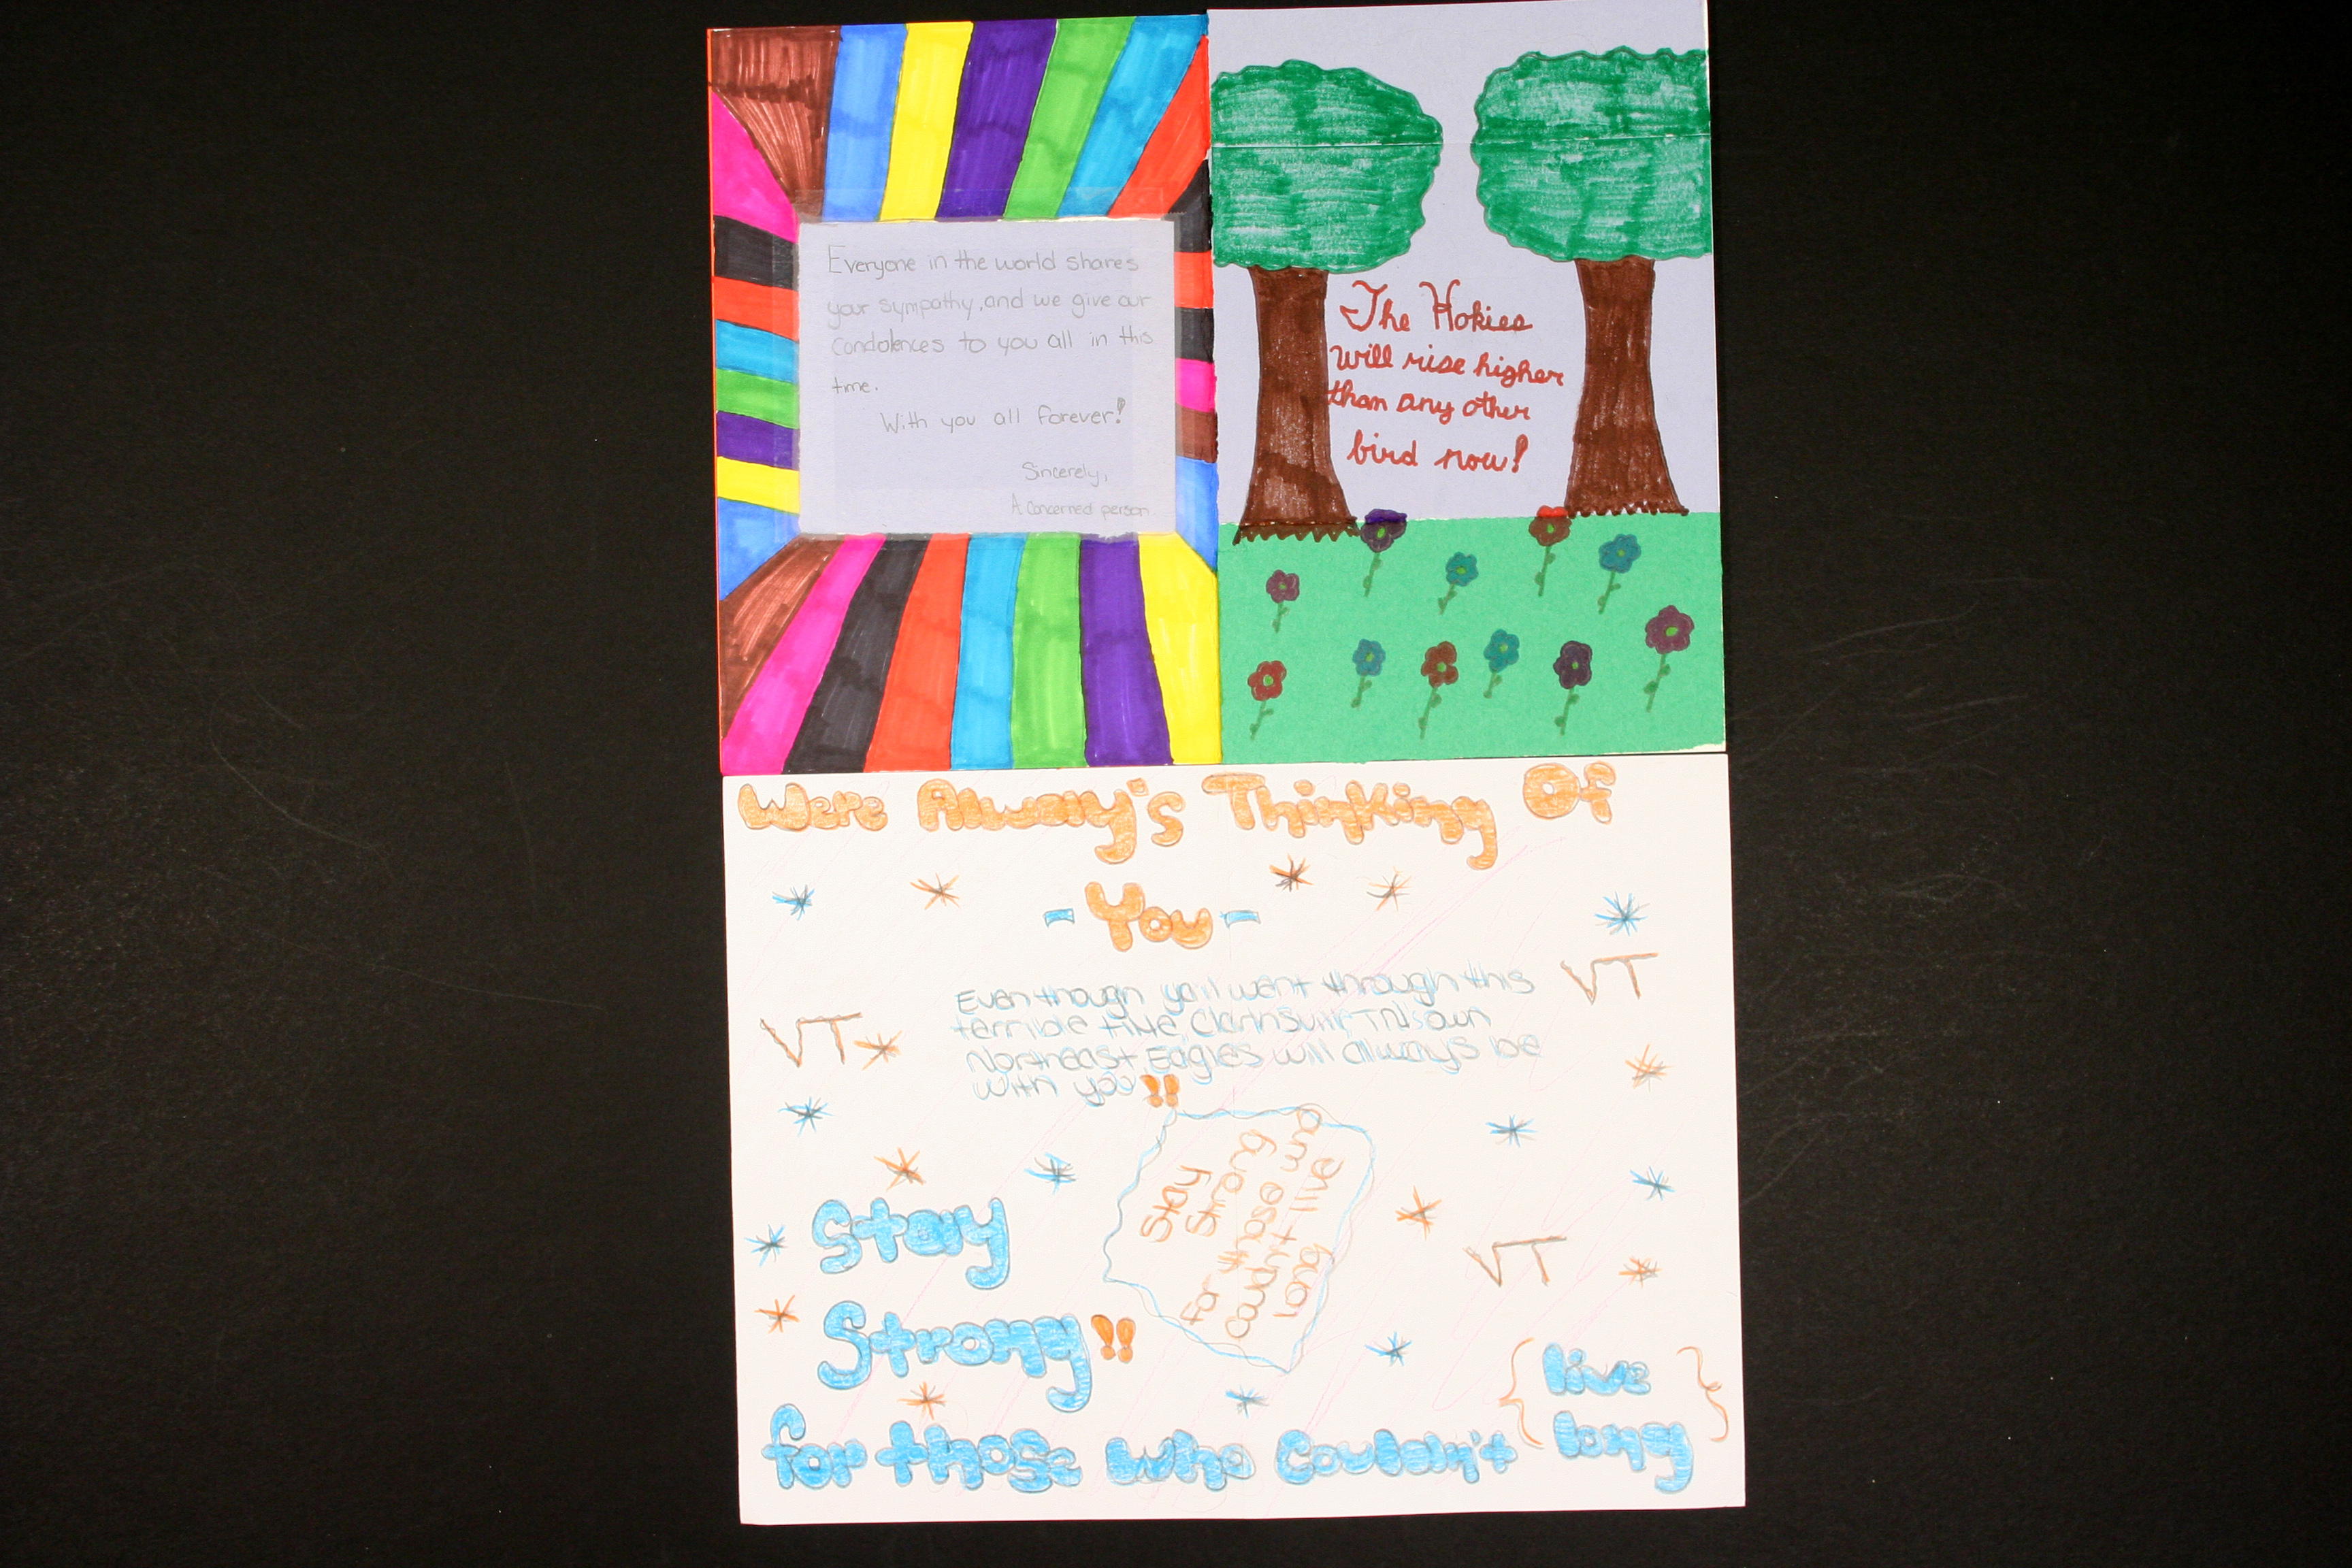 Everyone in the world shares
your sympathy, and we give our
condolences to you all in this
time.
With you all forever!
Sincerely,
A concerned person.
The Hokies
will rise higher
than any other
bird now!
Were Alway's Thinking Of
- You -
Even though ya'll went through this
terrible time, Clarksville TN's own
Northeast Eagles will always be
with you!!
VT
VT
Stay
Strong
For thoase who
could'nt live
long
Stay
Strong!!
VT
for those who couldn't {live
long}